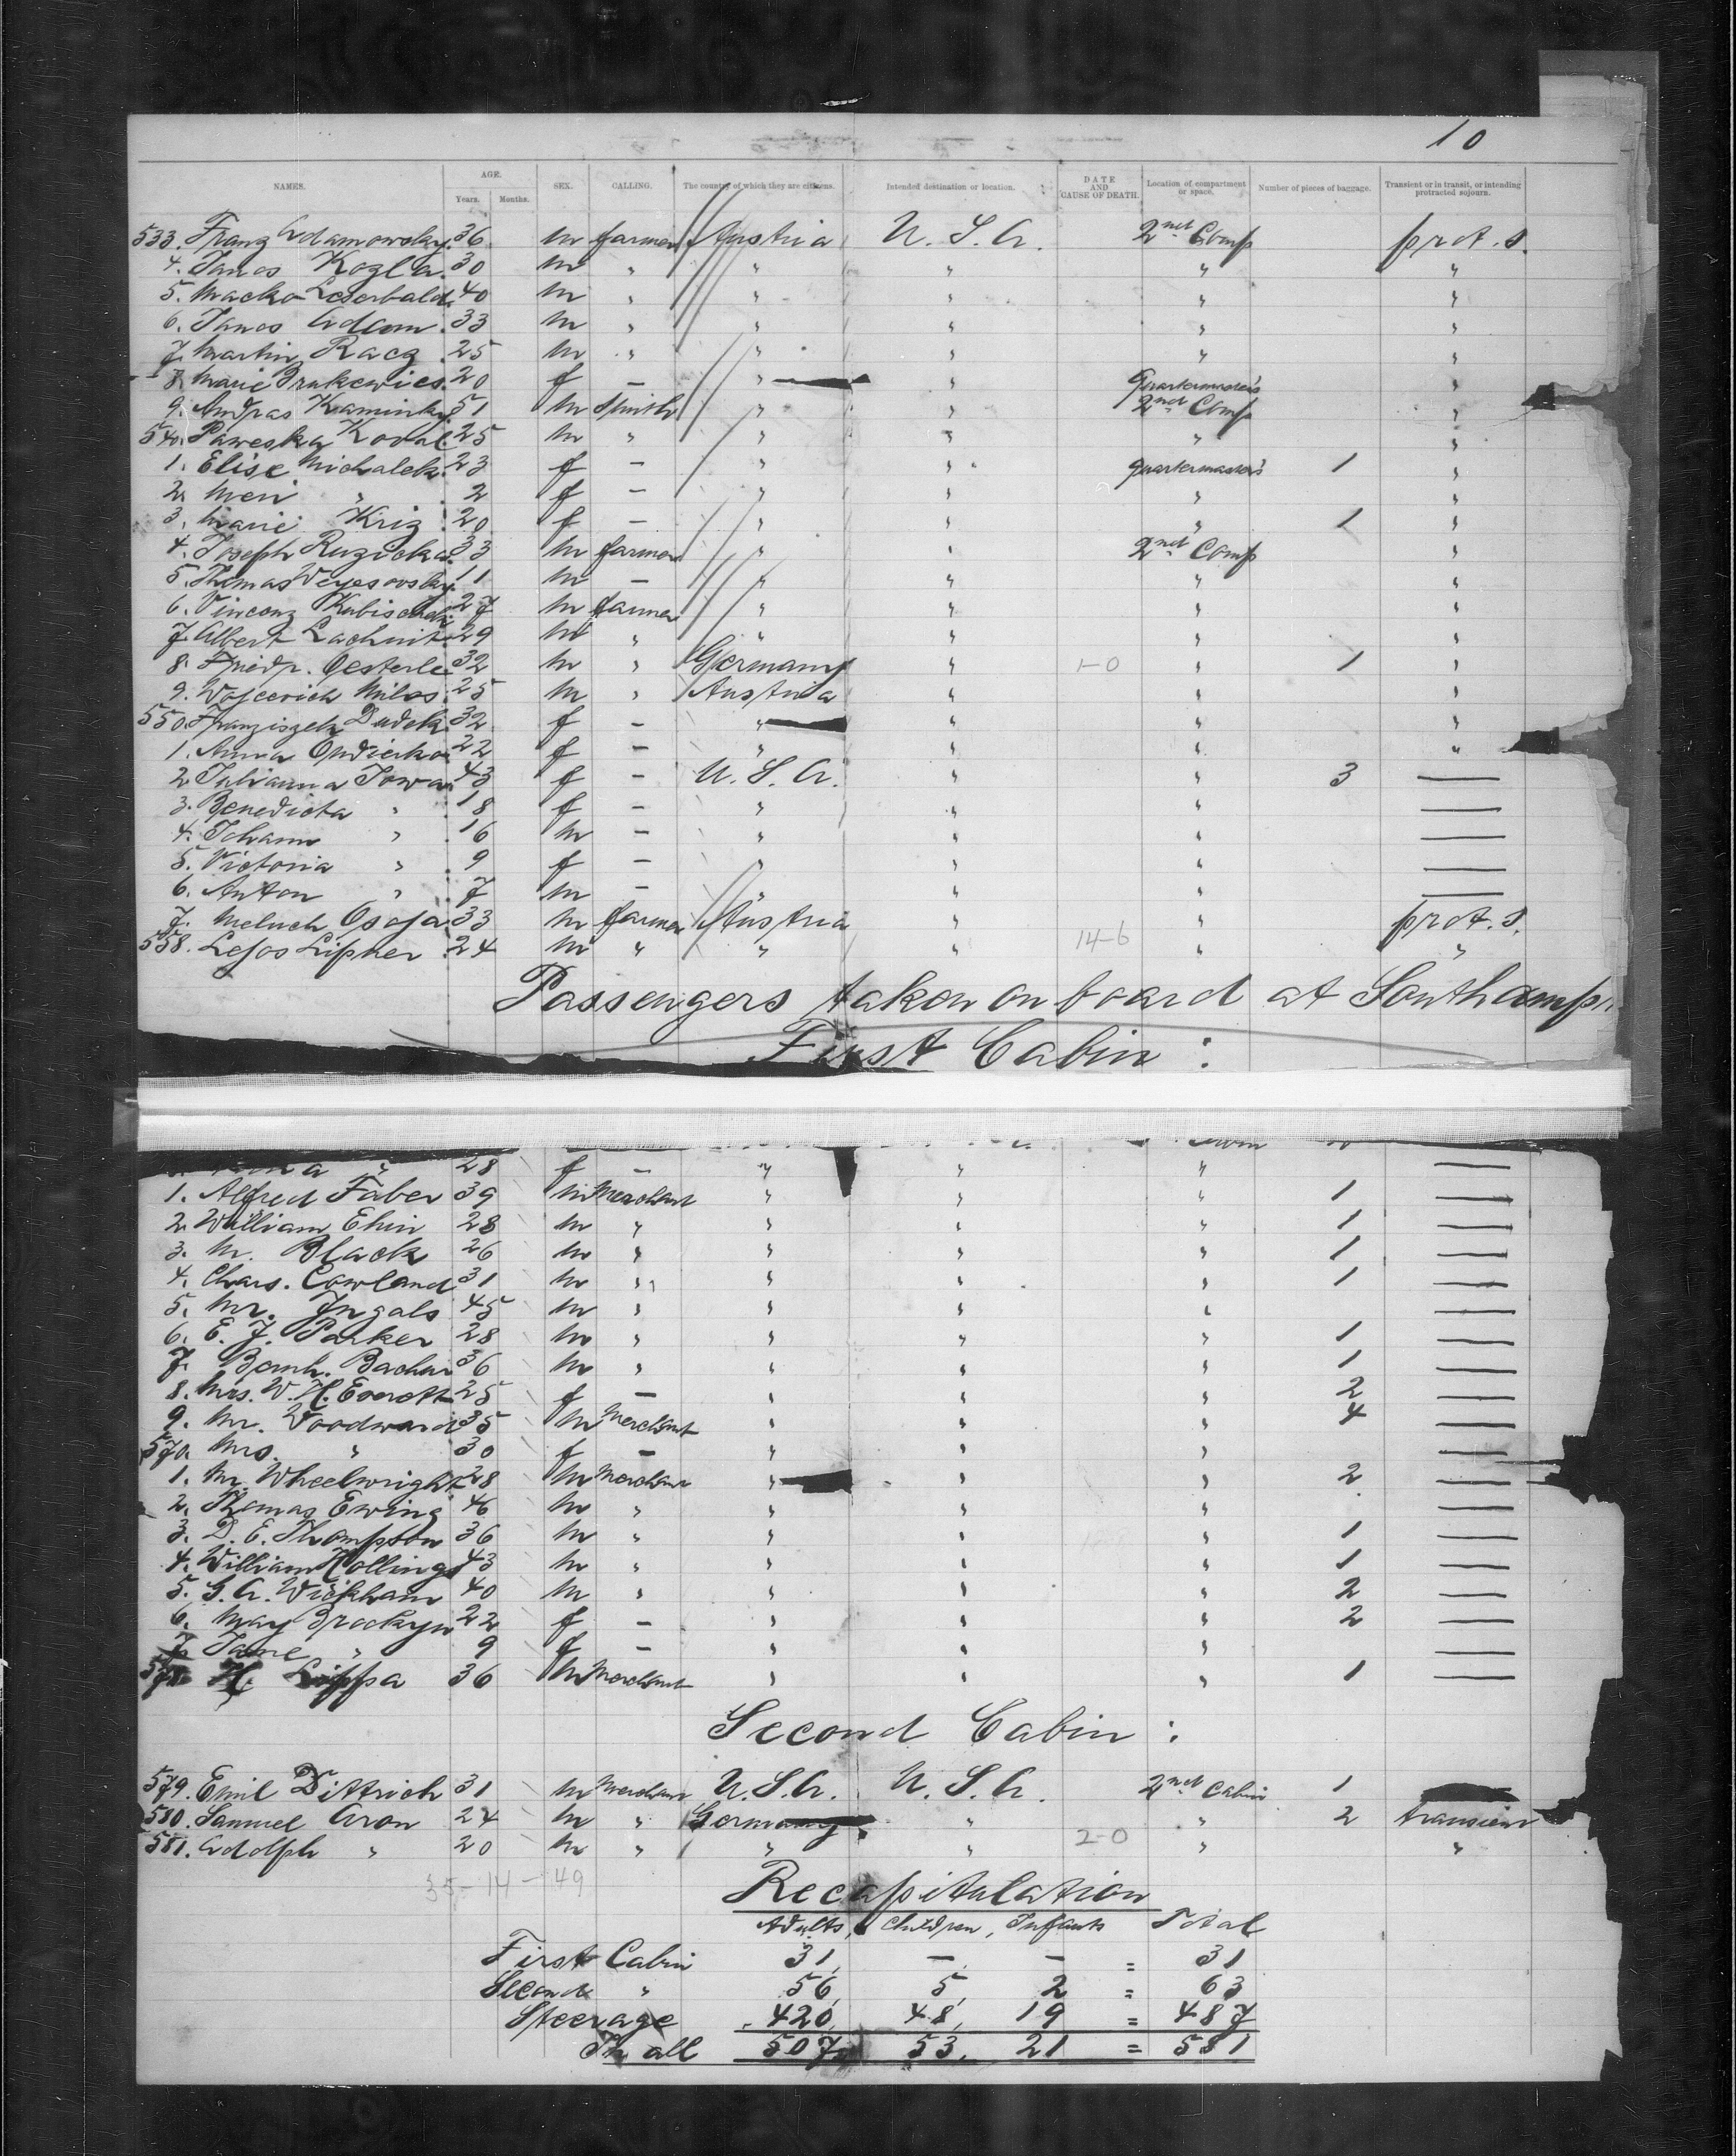 10
NAMES. AGE. Years. Months. SEX. CALLING. The country of which they are citizens. Intended destination or location. DATE AND CAUSE OF DEATH. Location of compartment or space. Number of pieces of baggage. Transient or in transit, or intending protracted sojourn.
533. Franz Adamowsky. 36 m farmer Austria U. S. A. 2nd Comp prot. s.
4. Janos Kozla. 30 m " " " " "
5. Macko 40 m " " " " "
6. Janos Adam. 33 m " " " " "
7. Martin Racz 25 m " " " " "
8. Marie 20 f — " " Quartermaster's "
9. Andras Kaminsky 51 m Smith " " 2nd Comp "
540. Paweska Koval. 25 m " " " " "
1. Elise Michalek. 23 f — " " Quartermaster's 1 "
2. Meri " 2 f — " " " "
3. Marie Kriz 20 f — " " " 1 "
4. Joseph Ruzicka. 33 m farmer " " 2nd Comp "
5. Thomas 11 m — " " " "
6. Vincenz 27 m farmer " " " "
7. Albert Lachnit. 29 m " " " " "
8. Friedr. Oesterle 32 m " Germany " 1-0 " 1 "
9. Wojcerich Milos. 25 m " Austria " " "
550. Franziszek Dudek 32 f — " " " "
1. Anna 22 f — " " " "
2. Julianna 43 f — U. S. A. " " 3 —
3. Benedicta " 18 f — " " " —
4. Johann " 16 m — " " " —
5. Victoria " 9 f — " " " —
6. Anton " 7 m — " " " —
7. Osoja 33 m farmer Austria " " prot. s.
558. Lejos Lipner 24 m " " " 14-6 " "
Passengers taken on board at Southampt.
First Cabin :
" 28 f — " " " —
1. Alfred Faber 39 m Merchant " " " 1 —
2. William Ehin 28 m " " " " 1 —
3. M. Black 26 m " " " " 1 —
4. Chars. Cowland 31 m " " " " 1 —
5. Mr. Ingals 45 m " " " " —
6. E. J. Parker 28 m " " " " 1 —
7. Bernh. 36 m " " " " 1 —
8. Mrs. W. H. Everett 25 f — " " " 2 —
9. Mr. Woodward 35 m Merchant " " " 4 —
570. Mrs. " 30 f — " " " —
1. Mr. Wheelwright 28 m Merchant " " " 2 —
2. Thomas Ewing 46 m " " " " —
3. D. E. Thompson 36 m " " " " 1 —
4. William Hollings 43 m " " " " 1 —
5. G. A. Wickham 40 m " " " " 2 —
6. May 22 f — " " " 2 —
7. Jane " 9 f — " " " —
578. H. Lippa 36 m Merchant " " " 1 —
Second Cabin :
579. Emil Dittrich 31 m Merchant U. S. A. U. S. A. 2nd Cabin 1
580. Samuel Aron 24 m " Germany " " 2 transient
581. Adolph " 20 m " " " 2-0 " "
35-14-49
Recapitulation
Adults, Children, Infants Total
First Cabin 31, — — = 31
Second " 56, 5, 2 = 63
Steerage 420, 48, 19 = 487
In all 507, 53, 21 = 581